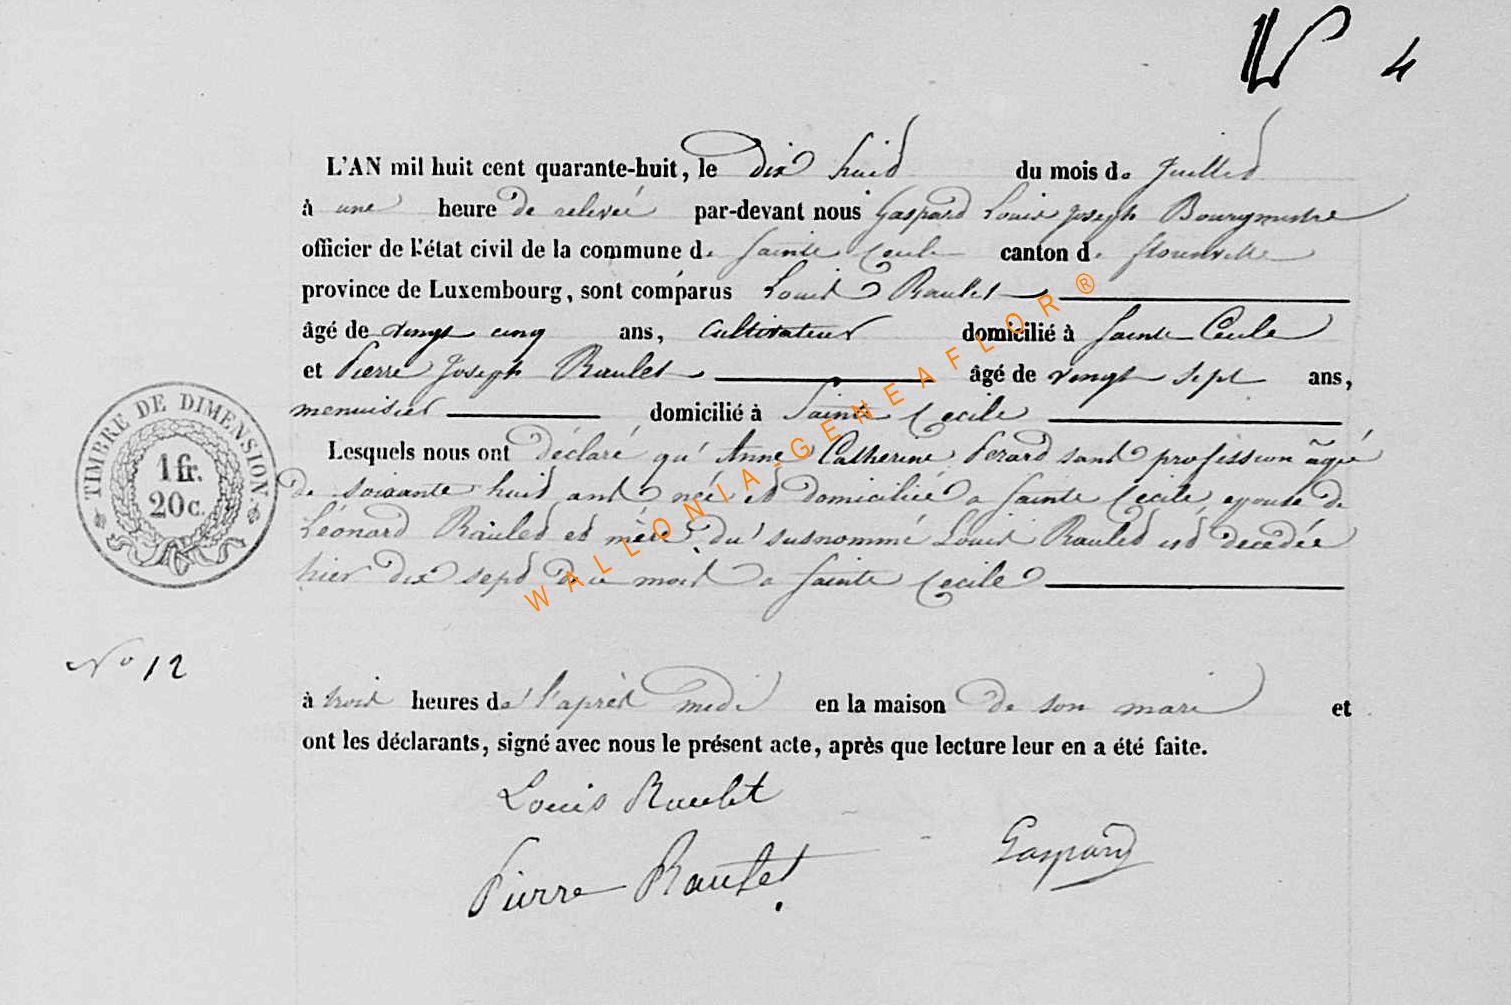 4
L'AN mil huit cent quarante-huit, le dix huit du mois de Juillet
à une heure de relevée par-devant nous Gaspard Louis Joseph Bourgmestre
officier de l'état civil de la commune de Sainte Cecile canton de florenville
province de Luxembourg, sont comparus Louis Raulet
âgé de vingt cinq ans, Cultivateur domicilié à Sainte Cecile
et Pierre Joseph Raulet âgé de vingt sept ans,
menuisier domicilié à Sainte Cecile
Lesquels nous ont déclaré qu'Anne Catherine Perard sans profission âgée
de soixante huit ans née et domiciliée a Sainte Cecile epouse de
Léonard Raulet et mère du susnommé Louis Raulet est decedée
hier dix sept de ce mois a Sainte Cecile
à trois heures de l'après medi en la maison de son mari et
ont les déclarants, signé avec nous le présent acte, après que lecture leur en a été faite.
Louis Raulet
Pierre Raulet
Gaspard
TIMBRE DE DIMENSION
1 fr.
20 c.
No 12
WALLONIA-GENEAFLOR®